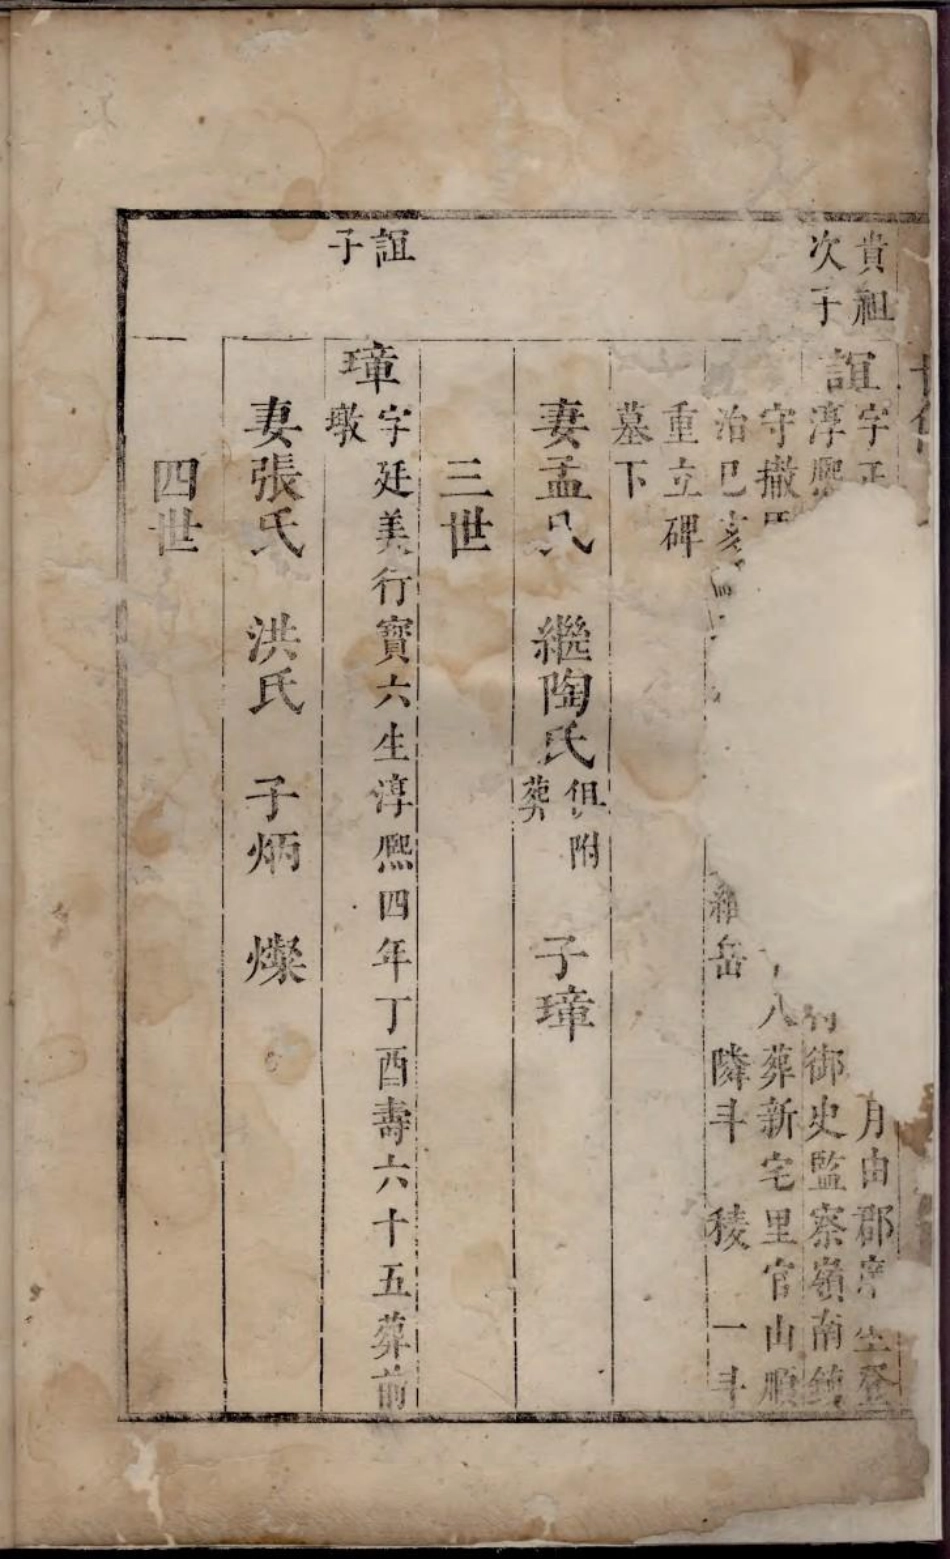 貴祖
次子
誼
字正 月由郡庠生登
淳熙 御史監察嶺南鎮
守撤 八葬新宅里官山順
治已亥 岳 隣斗 稜 一斗
重立碑
墓下
妻孟氏 繼陶氏 俱附
葬 子璋
三世
誼
子
璋
字廷美行寶六生淳熙四年丁酉壽六十五葬前
墩
妻張氏 洪氏 子炳 燦
四世